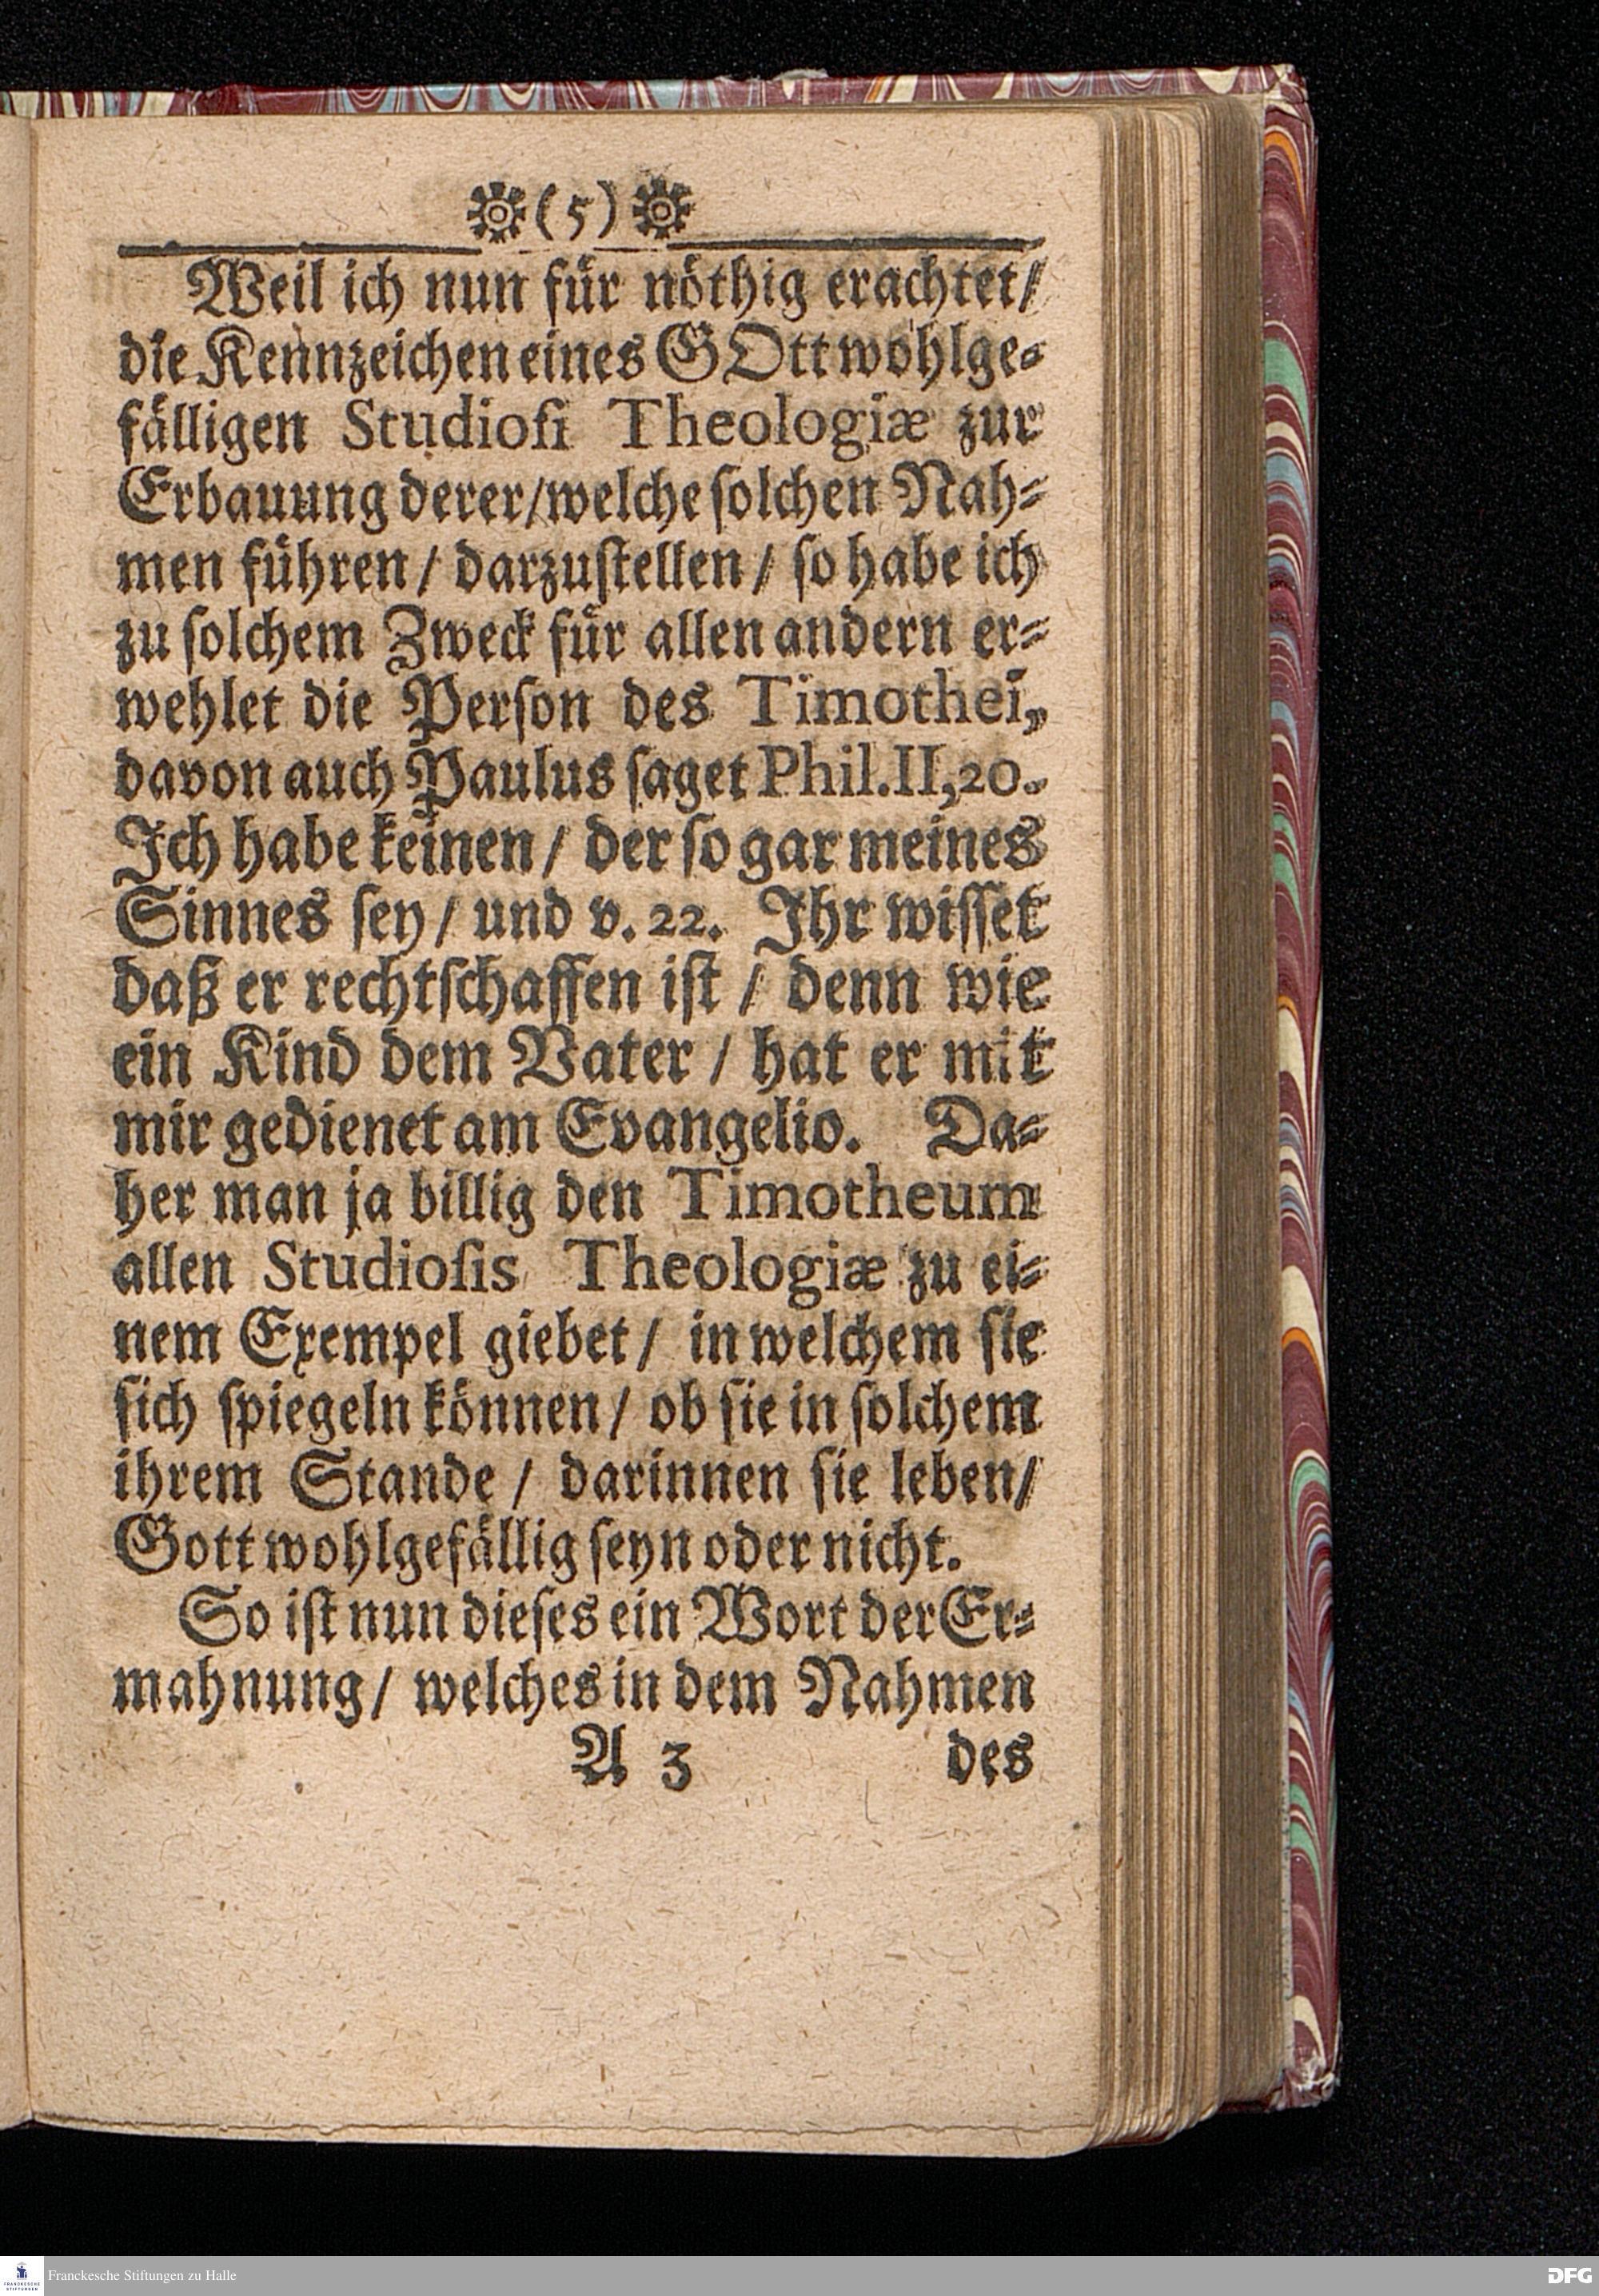 (5)
Weil ich nun für nöthig erachtet/
die Kennzeichen eines GOtt wohlge⸗
fälligen Studioſi Theologiæ zur
Erbauung derer/welche ſolchen Nah⸗
men führen / darzuſtellen / ſo habe ich
zu ſolchem Zweck für allen andern er⸗
wehlet die Perſon des Timothei,
davon auch Paulus ſaget Phil. II, 20.
Ich habe keinen / der ſo gar meines
Sinnes ſey / und v. 22. Ihr wiſſet
daß er rechtſchaffen iſt / denn wie
ein Kind dem Vater / hat er mit
mir gedienet am Evangelio. Da⸗
her man ja billig den Timotheum
allen Studioſis Theologiæ zu ei⸗
nem Exempel giebet / in welchem ſie
ſich ſpiegeln können / ob ſie in ſolchem
ihrem Stande / darinnen ſie leben/
Gott wohlgefällig ſeyn oder nicht.
So iſt nun dieſes ein Wort der Er⸗
mahnung / welches in dem Nahmen
A 3 des
FRANCKESCHE STIFTUNGEN
Franckesche Stiftungen zu Halle
DFG